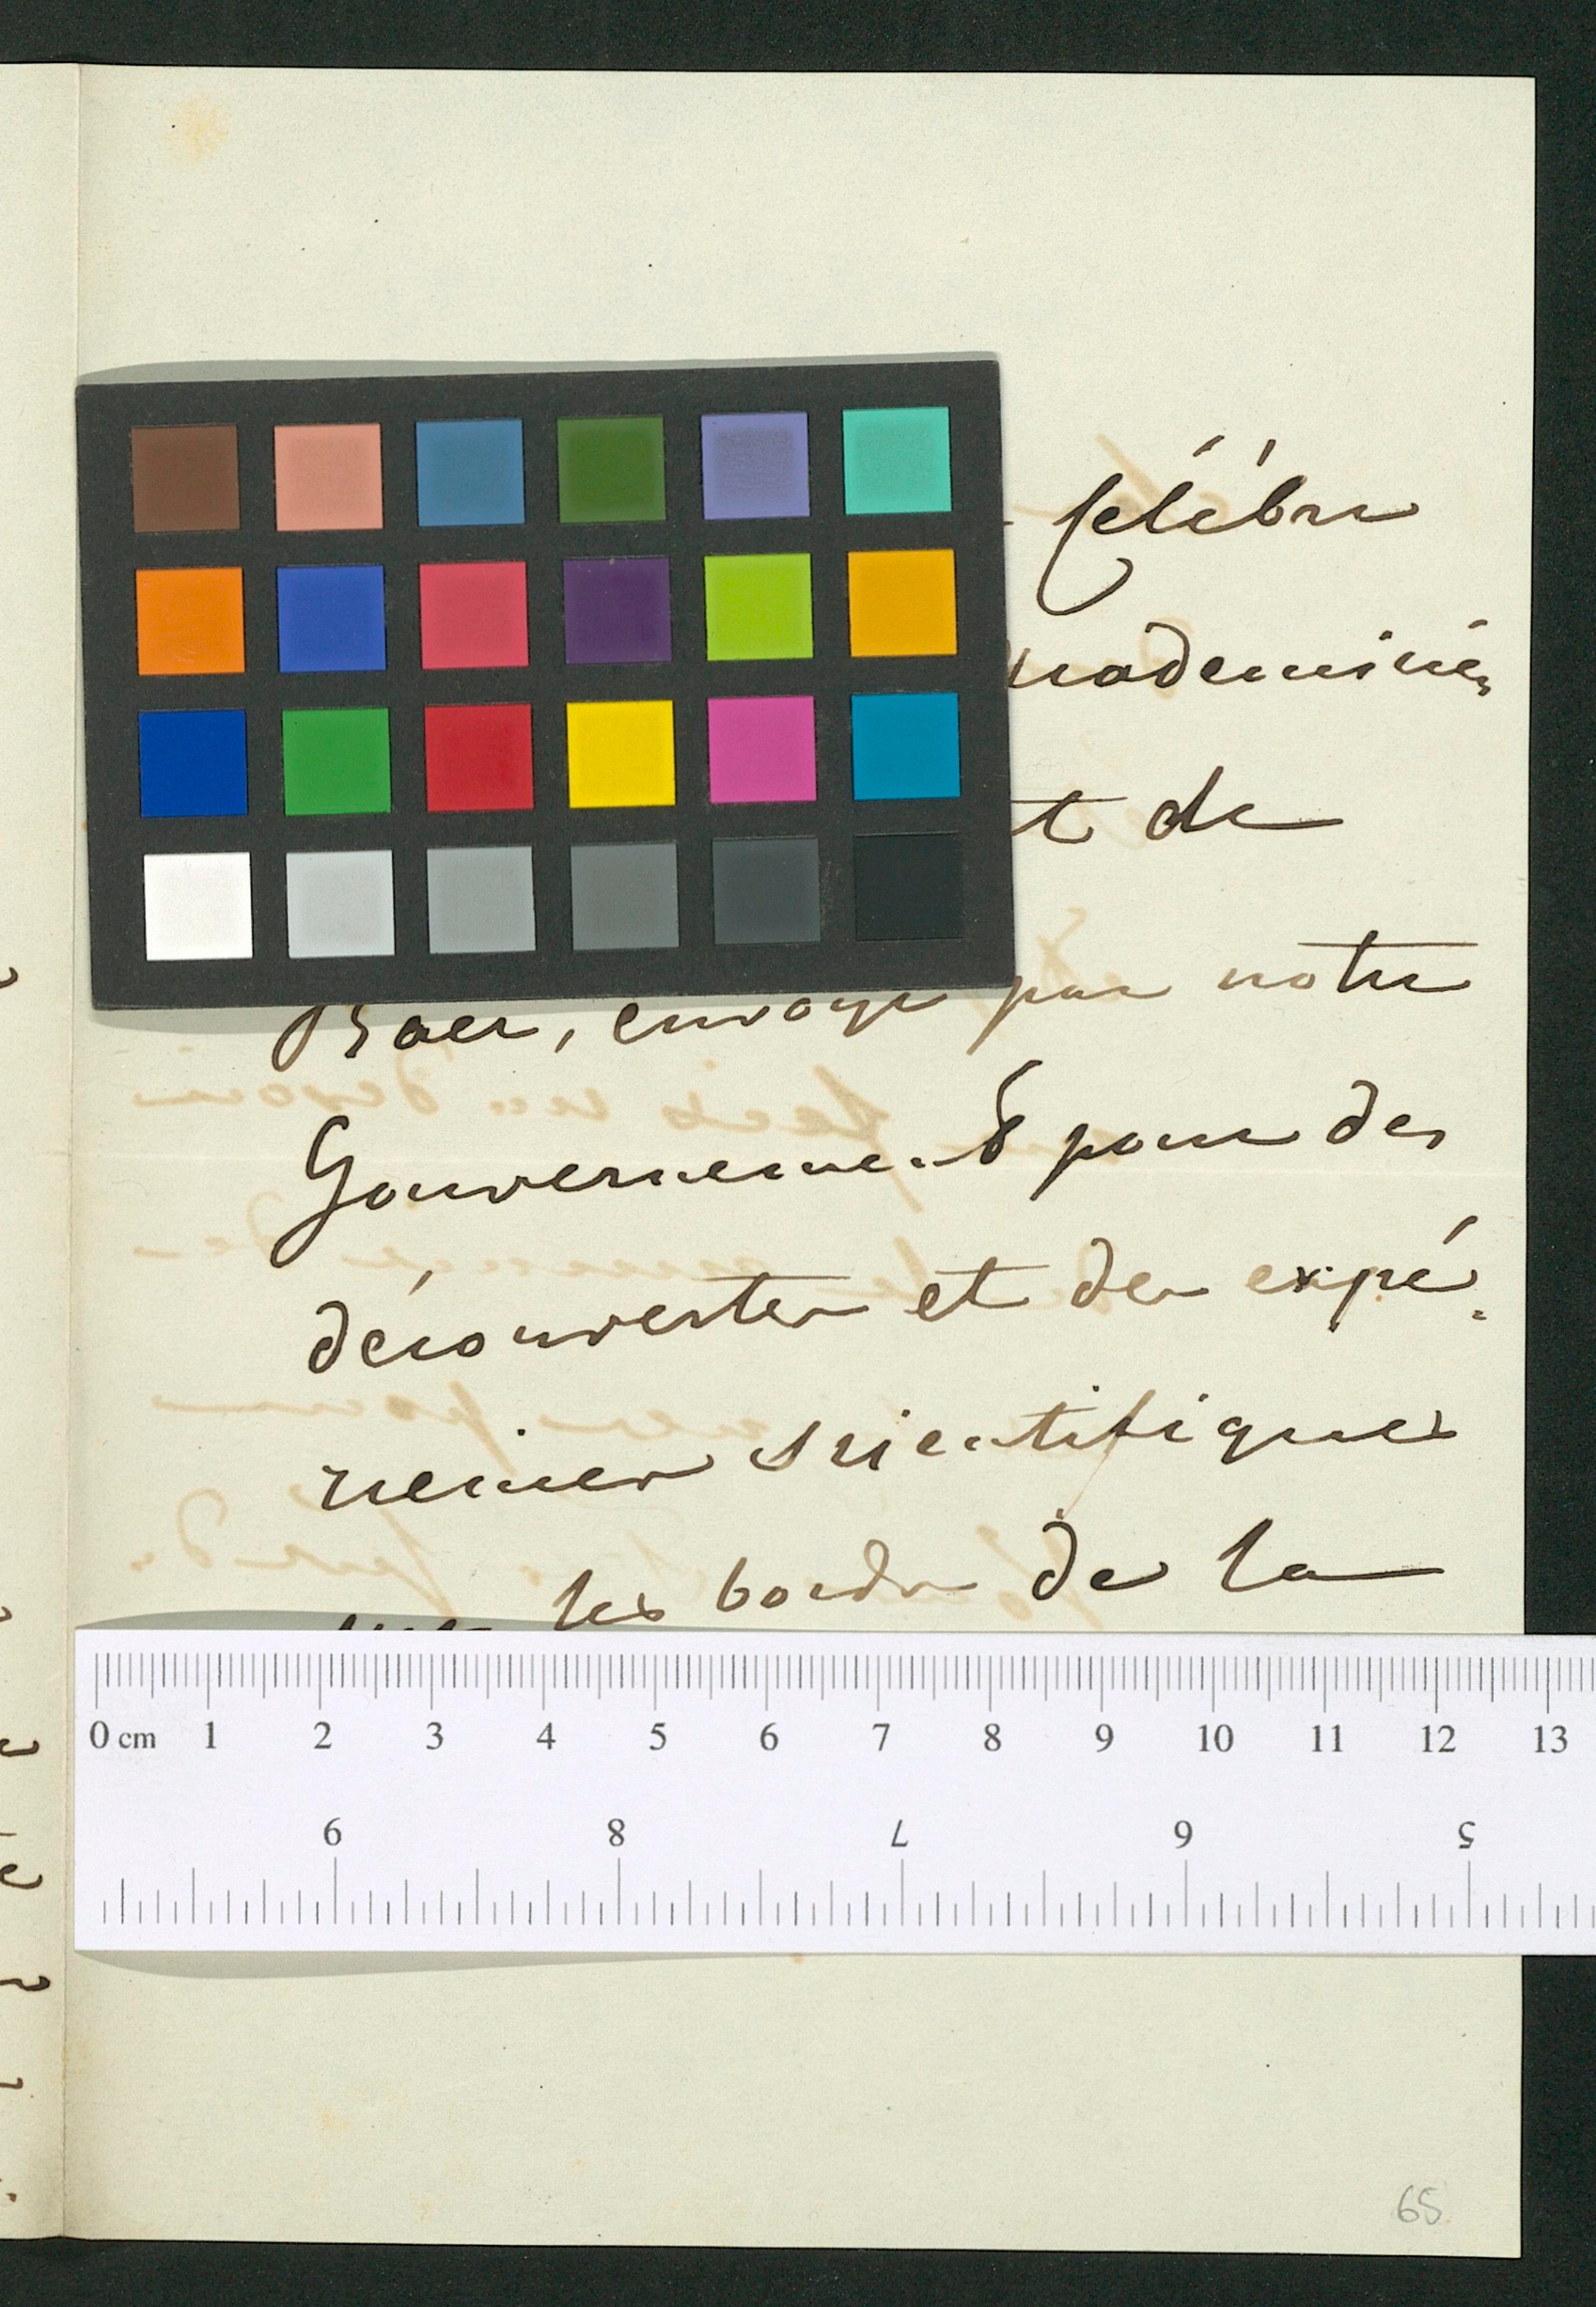 célébre
académicien
t de
Baer, envoyé par notre
Gouvernement pour des
découvertes et des expé-
riences scientifiques
sur les bords de la
0 cm 1 2 3 4 5 6 7 8 9 10 11 12 13
9 8 7 6 5
65